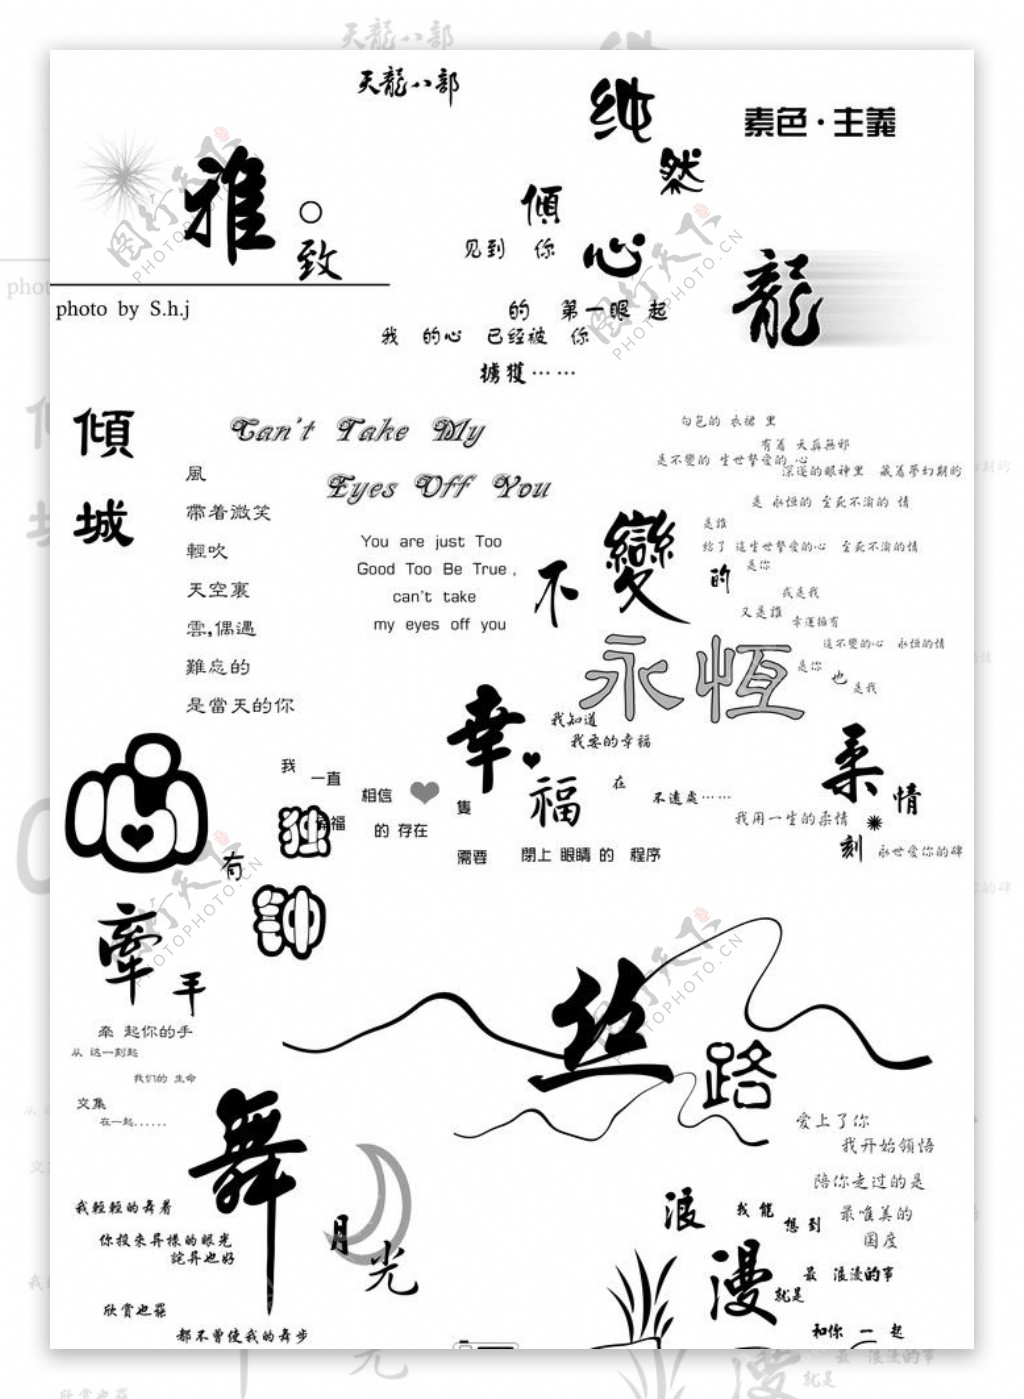 天龍八部
純
然
素色·主義
雅
致
photo by S.h.j
傾
心
见到 你
的 第一眼 起
我 的心 已经被 你
擄獲……
龍
傾
城
Can't Take My
Eyes Off You
風
帶着微笑
輕吹
天空裏
雲,偶遇
難忘的
是當天的你
You are just Too
Good Too Be True ,
can't take
my eyes off you
白色的 衣裙 里
有着 天真無邪
是不變的 生世摯愛的 心
深邃的眼神里 藏着夢幻期盼
是 永恒的 至死不渝的 情
是誰
給了 這生世摯愛的心 至死不渝的情
是你
我是我
又是誰
幸運擁有
這不變的心 永恒的情
是你
也
是我
不
變
的
永恆
幸
福
我知道
我要的幸福
在
不遠處……
柔
情
我用一生的柔情
刻
永世爱你的碑
心
有
独
钟
我
一直
相信
幸福
的 存在
隻
需要
閉上 眼睛 的 程序
牽
手
牵 起你的手
从 这一刻起
我们的 生命
交集
在一起......
丝
路
爱上了你
我开始领悟
陪你走过的是
最唯美的
国度
舞
月
光
我輕輕的舞着
你投來异樣的眼光
詫异也好
欣賞也罷
都不曾使我的舞步
浪
漫
我 能
想 到
最 浪漫的事
就是
和你 一 起